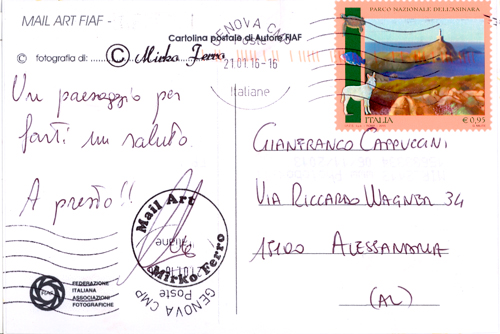 MAIL ART FIAF -
Cartolina postale di Autore FIAF
© fotografia di:
© Mirko Ferro
GENOVA CMP
Poste
21.01.16-16
Italiane
PARCO NAZIONALE DELL'ASINARA
ITALIA € 0,95
Un paesaggio per
farti un saluto.
A presto!!
GIANFRANCO CAPUCCINI
VIA RICCARDO WAGNER 34
15100 ALESSANDRIA
(AL)
Mail Art
Mirko Ferro
GENOVA CMP
Poste
FIAF
FEDERAZIONE
ITALIANA
ASSOCIAZIONI
FOTOGRAFICHE